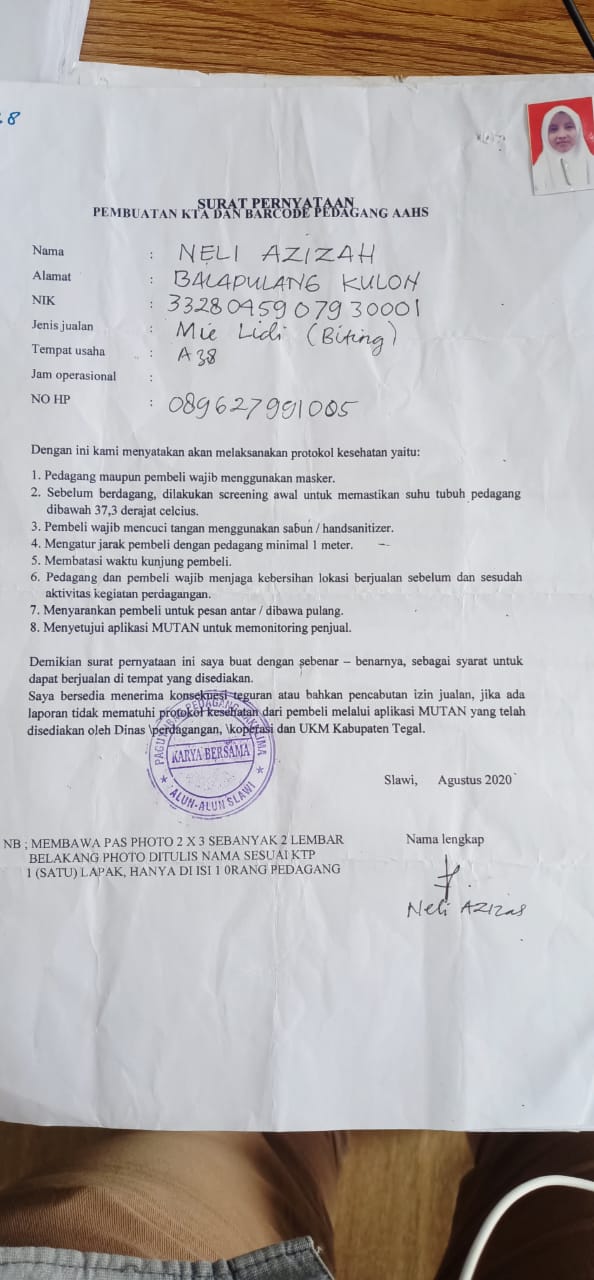 8
SURAT PERNYATAAN
PEMBUATAN KTA DAN BARCODE PEDAGANG AAHS
Nama : NELI AZIZAH
Alamat : BALAPULANG KULON
NIK : 3328045907930001
Jenis jualan : Mie Lidi (Biting)
Tempat usaha : A 38
Jam operasional :
NO HP : 089627991005
Dengan ini kami menyatakan akan melaksanakan protokol kesehatan yaitu:
1. Pedagang maupun pembeli wajib menggunakan masker.
2. Sebelum berdagang, dilakukan screening awal untuk memastikan suhu tubuh pedagang
dibawah 37,3 derajat celcius.
3. Pembeli wajib mencuci tangan menggunakan sabun / handsanitizer.
4. Mengatur jarak pembeli dengan pedagang minimal 1 meter.
5. Membatasi waktu kunjung pembeli.
6. Pedagang dan pembeli wajib menjaga kebersihan lokasi berjualan sebelum dan sesudah
aktivitas kegiatan perdagangan.
7. Menyarankan pembeli untuk pesan antar / dibawa pulang.
8. Menyetujui aplikasi MUTAN untuk memonitoring penjual.
Demikian surat pernyataan ini saya buat dengan sebenar – benarnya, sebagai syarat untuk
dapat berjualan di tempat yang disediakan.
Saya bersedia menerima konsekuesi teguran atau bahkan pencabutan izin jualan, jika ada
laporan tidak mematuhi protokol kesehatan dari pembeli melalui aplikasi MUTAN yang telah
disediakan oleh Dinas \perdagangan, \koperasi dan UKM Kabupaten Tegal.
PAGUYUBAN PEDAGANG KAKI LIMA
KARYA BERSAMA
ALUN-ALUN SLAWI
Slawi, Agustus 2020
NB ; MEMBAWA PAS PHOTO 2 X 3 SEBANYAK 2 LEMBAR
BELAKANG PHOTO DITULIS NAMA SESUAI KTP
1 (SATU) LAPAK, HANYA DI ISI 1 0RANG PEDAGANG
Nama lengkap
Neli AZIZAS